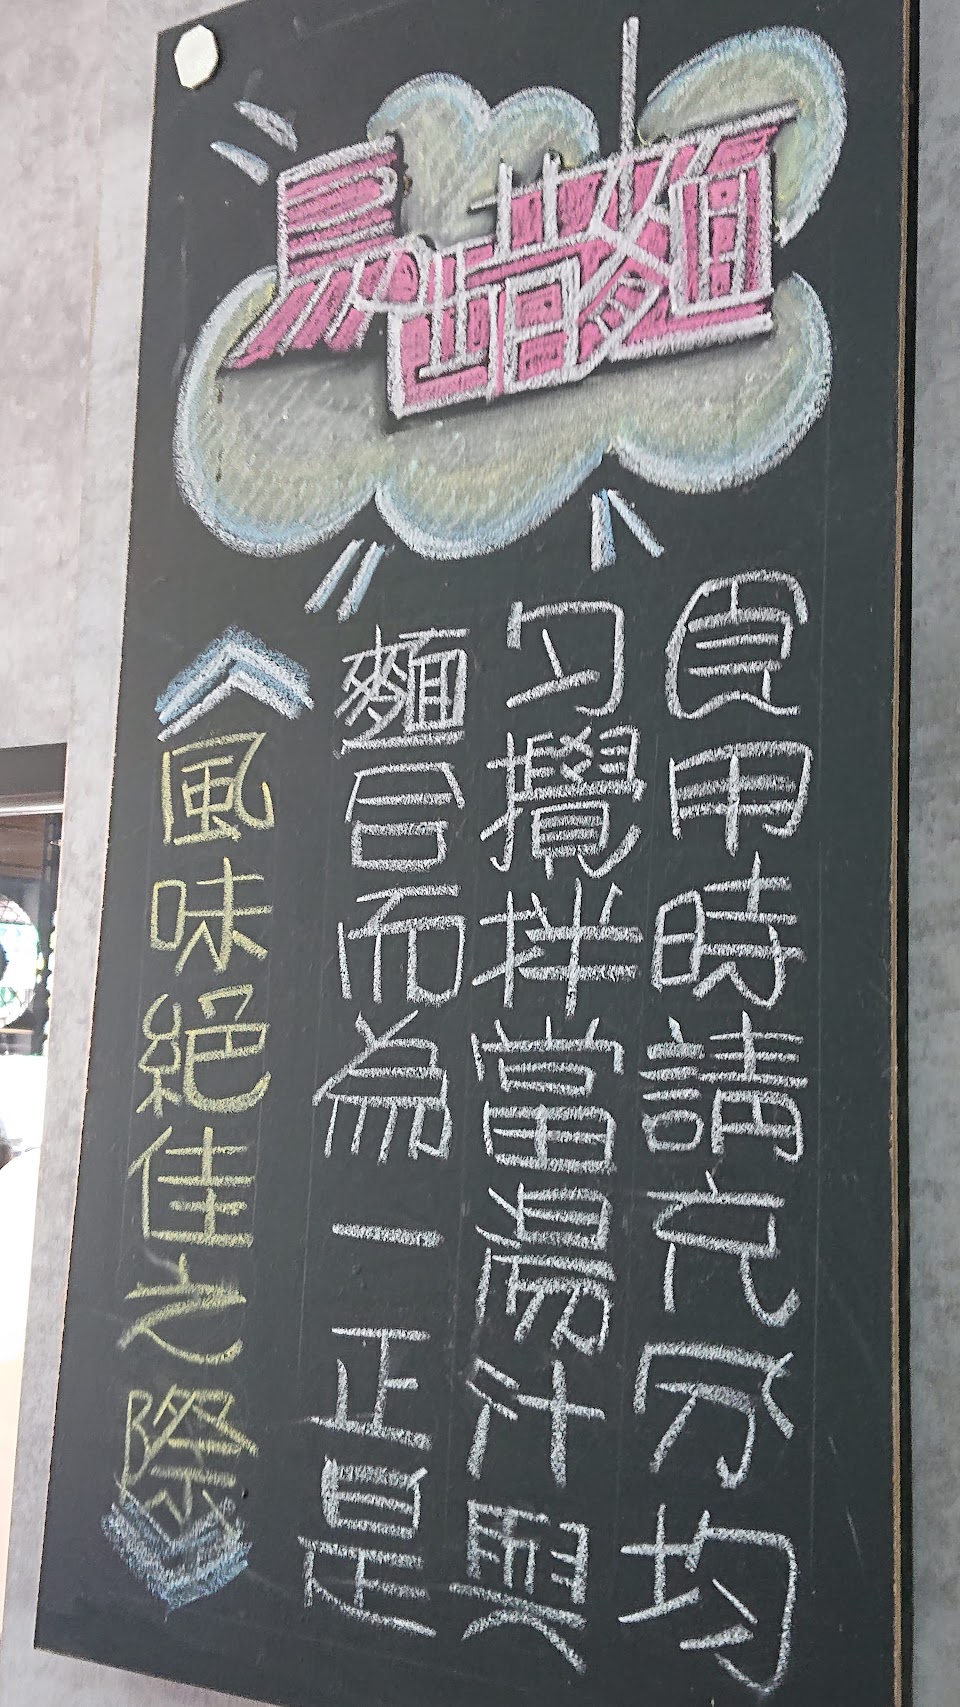 烏醋麵
食用時請充分均
勻攪拌當湯汁與
麵合而為一正是
《風味絕佳之際》